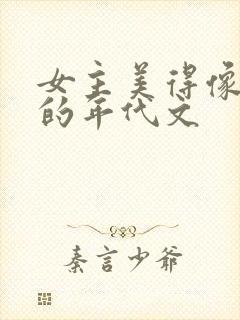 女主美得像
的年代文
秦言少爷